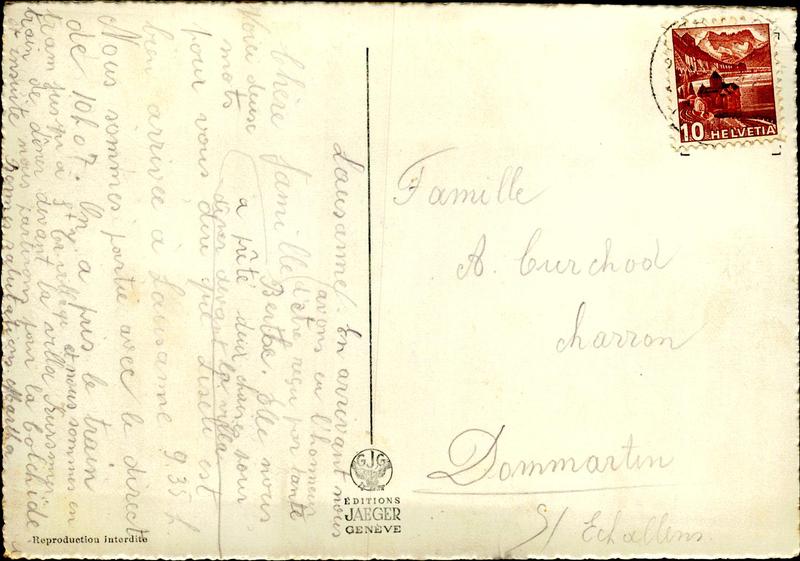 Lausanne. En arrivant nous
avons eu l'honneur
d'être reçu par tante
Chère famille
Berthe. Elle nous
a prêté deux chaises pour
dîner devant la villa
Voici deux
mots
pour vous dire que Lisette est
bien arrivée à Lausanne 9.35 h.
Nous sommes partie avec le direct
de 10h07. On a pris le train
tram jusqu'à St et nous sommes en
train de dîner devant la villa
ensuite nous partirons pour la
Bonnes salutations Martha
Famille
A. Curchod
charron
Dommartin
s/ Echallens.
10 HELVETIA
JG
ÉDITIONS
JAEGER
GENÈVE
Reproduction interdite